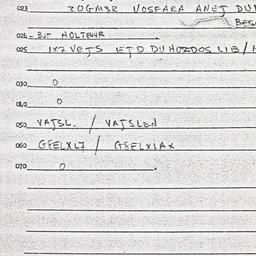 023 ZOGM3R VOSFARA ANET DU
BES
024 BUT HOLTEUUR
025 1X7 VCTS ETD DUHOZDOS LIB /
030 0
040 0
050 VATSL. / VATSLEN
060 GSELXL7 / GSELXLAX
070 0